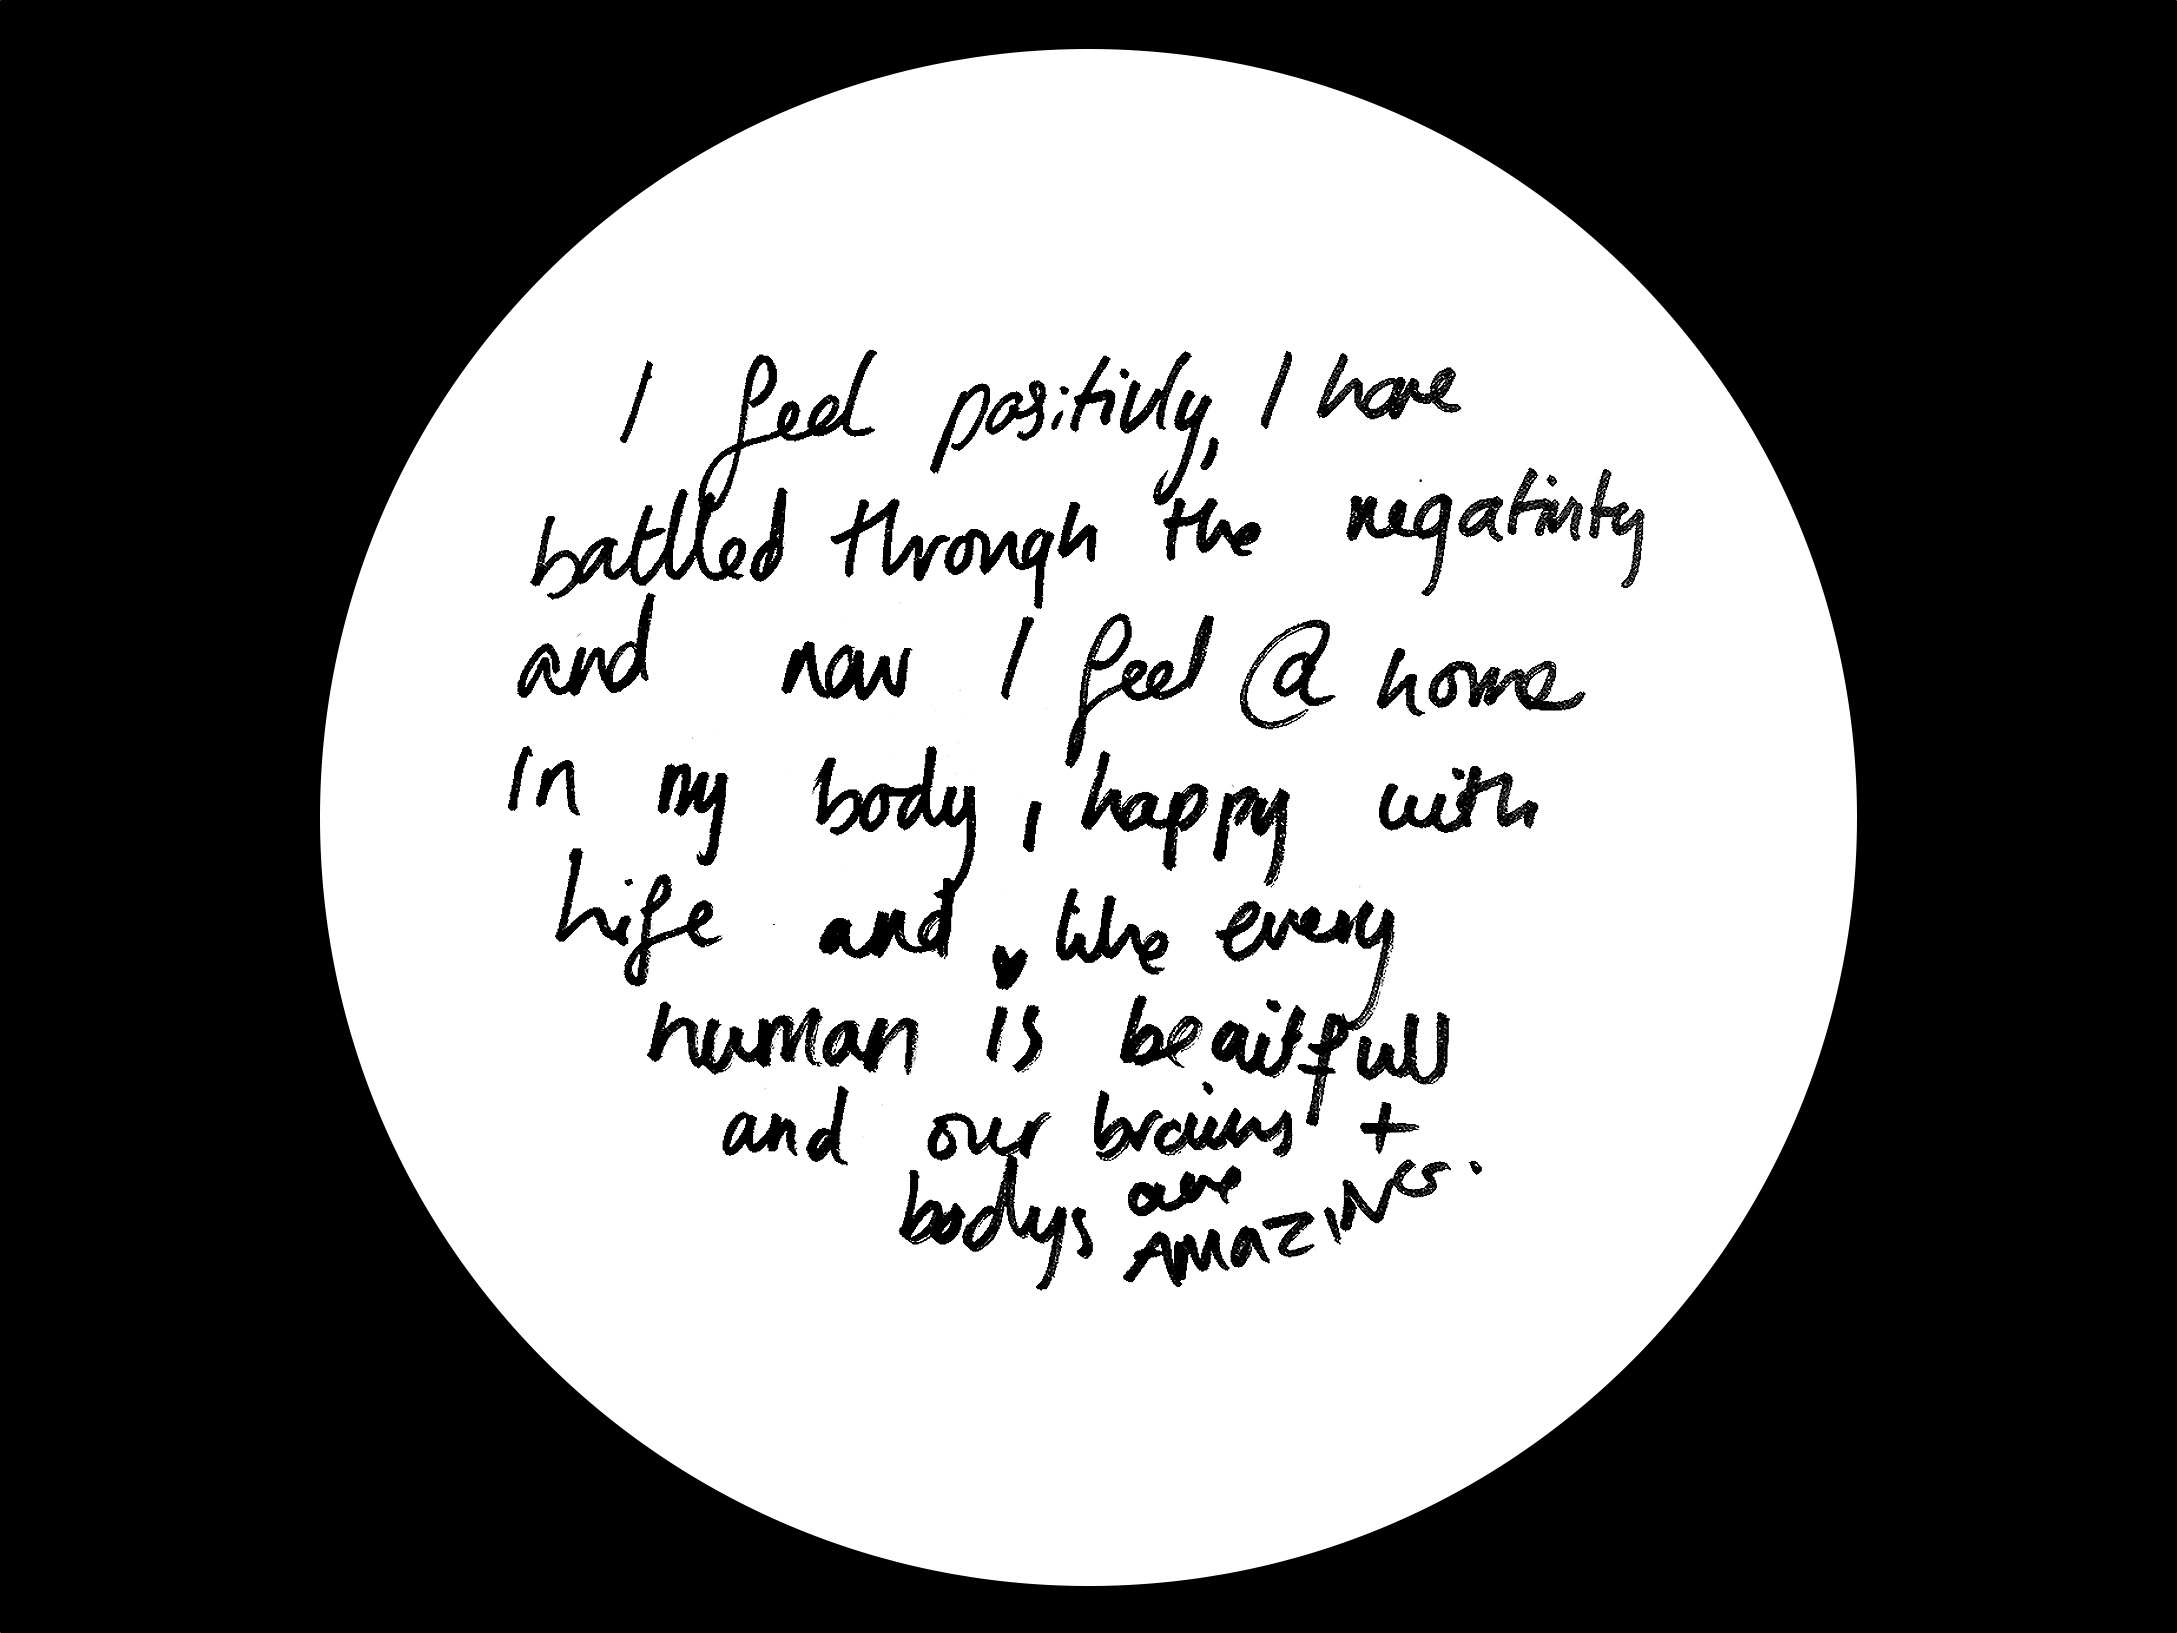 I feel positivly, I have
battled through the negativity
and now I feel @ home
in my body, happy with
life and, like every
human is beaitfull
and our brains +
bodys are
AMAZING.